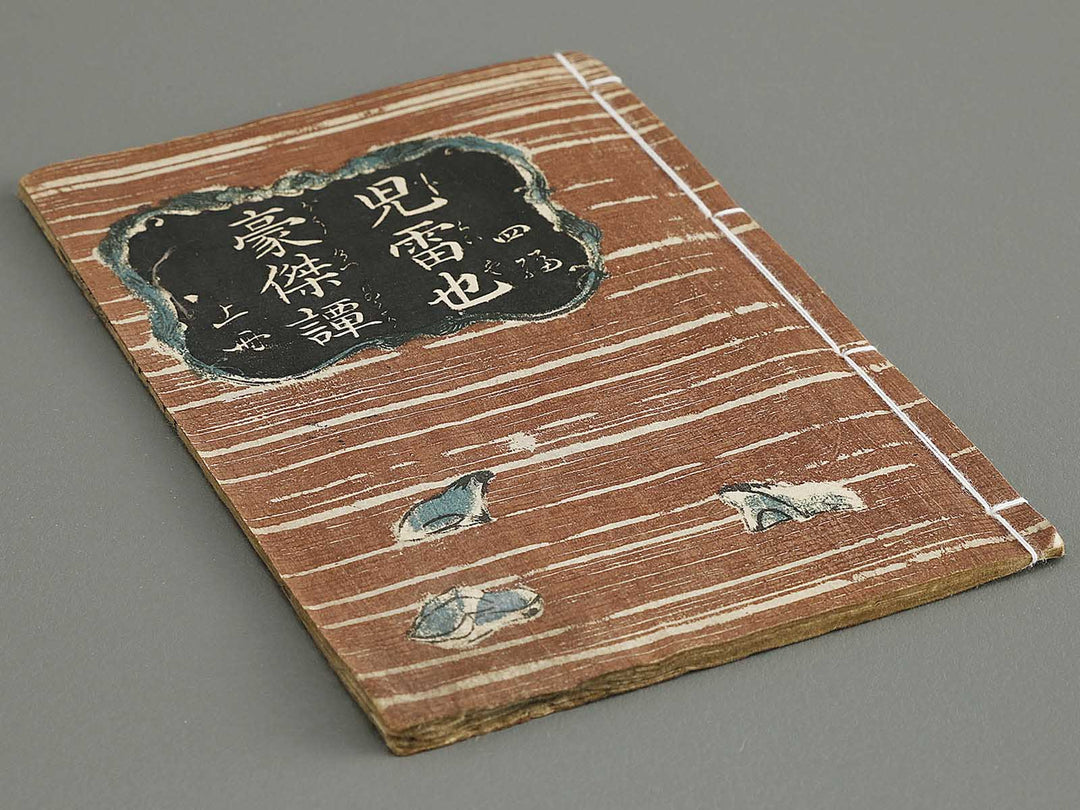 児雷也
四編
豪傑譚
上冊